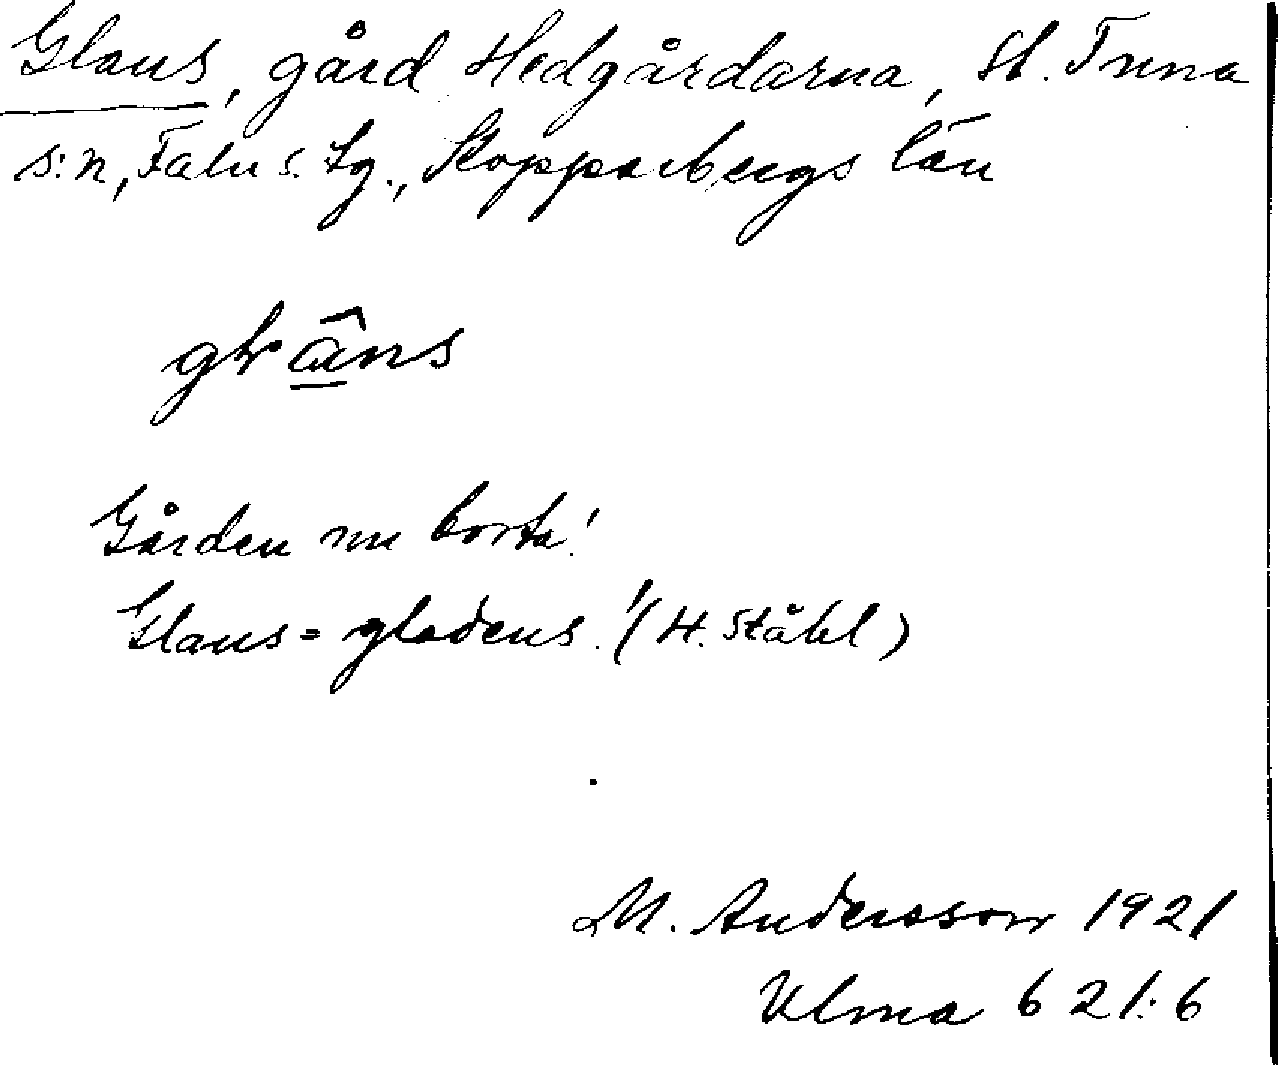 Glaus, gård Hedgårdarna, St. Tuna
s:n, Falu s. tg., Kopparbergs län
Gården nu borta!
Glaus = gladens! (H. Ståhl)
M. Andersson 1921
Ulma 621:6